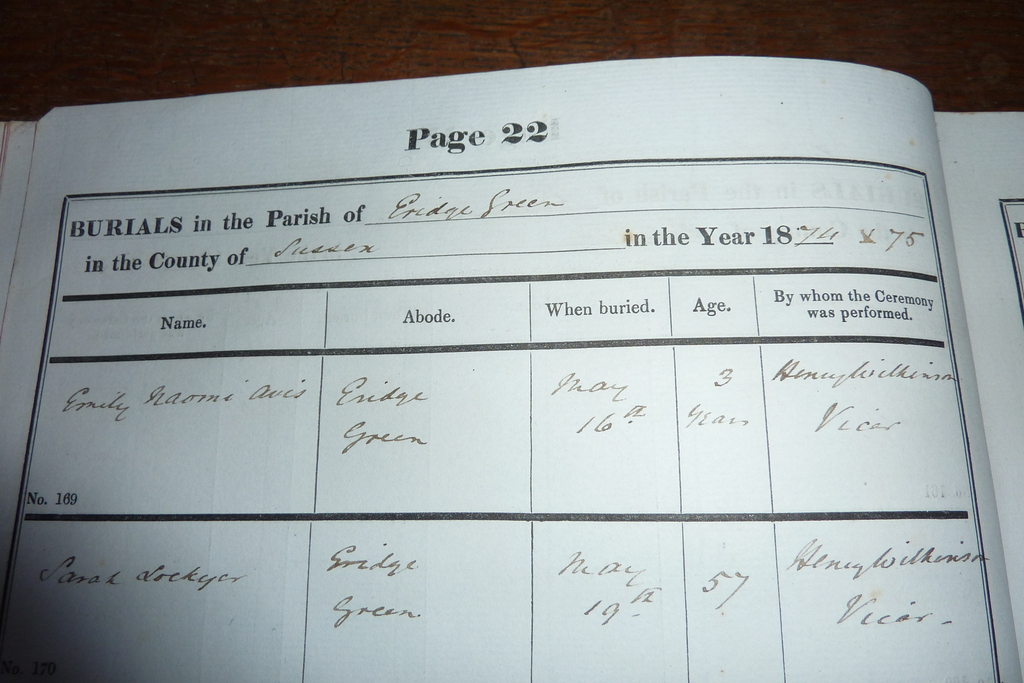 Page 22
BURIALS in the Parish of Eridge Green
in the County of Sussex in the Year 1874 & 75
Name. Abode. When buried. Age. By whom the Ceremony
was performed.
Emily Naomi Avis Eridge May 3 Henry Wilkinson
Green 16th Years Vicar
No. 169
Sarah Lockyer Eridge May 57 Henry Wilkinson
Green 19th Vicar -
No. 170